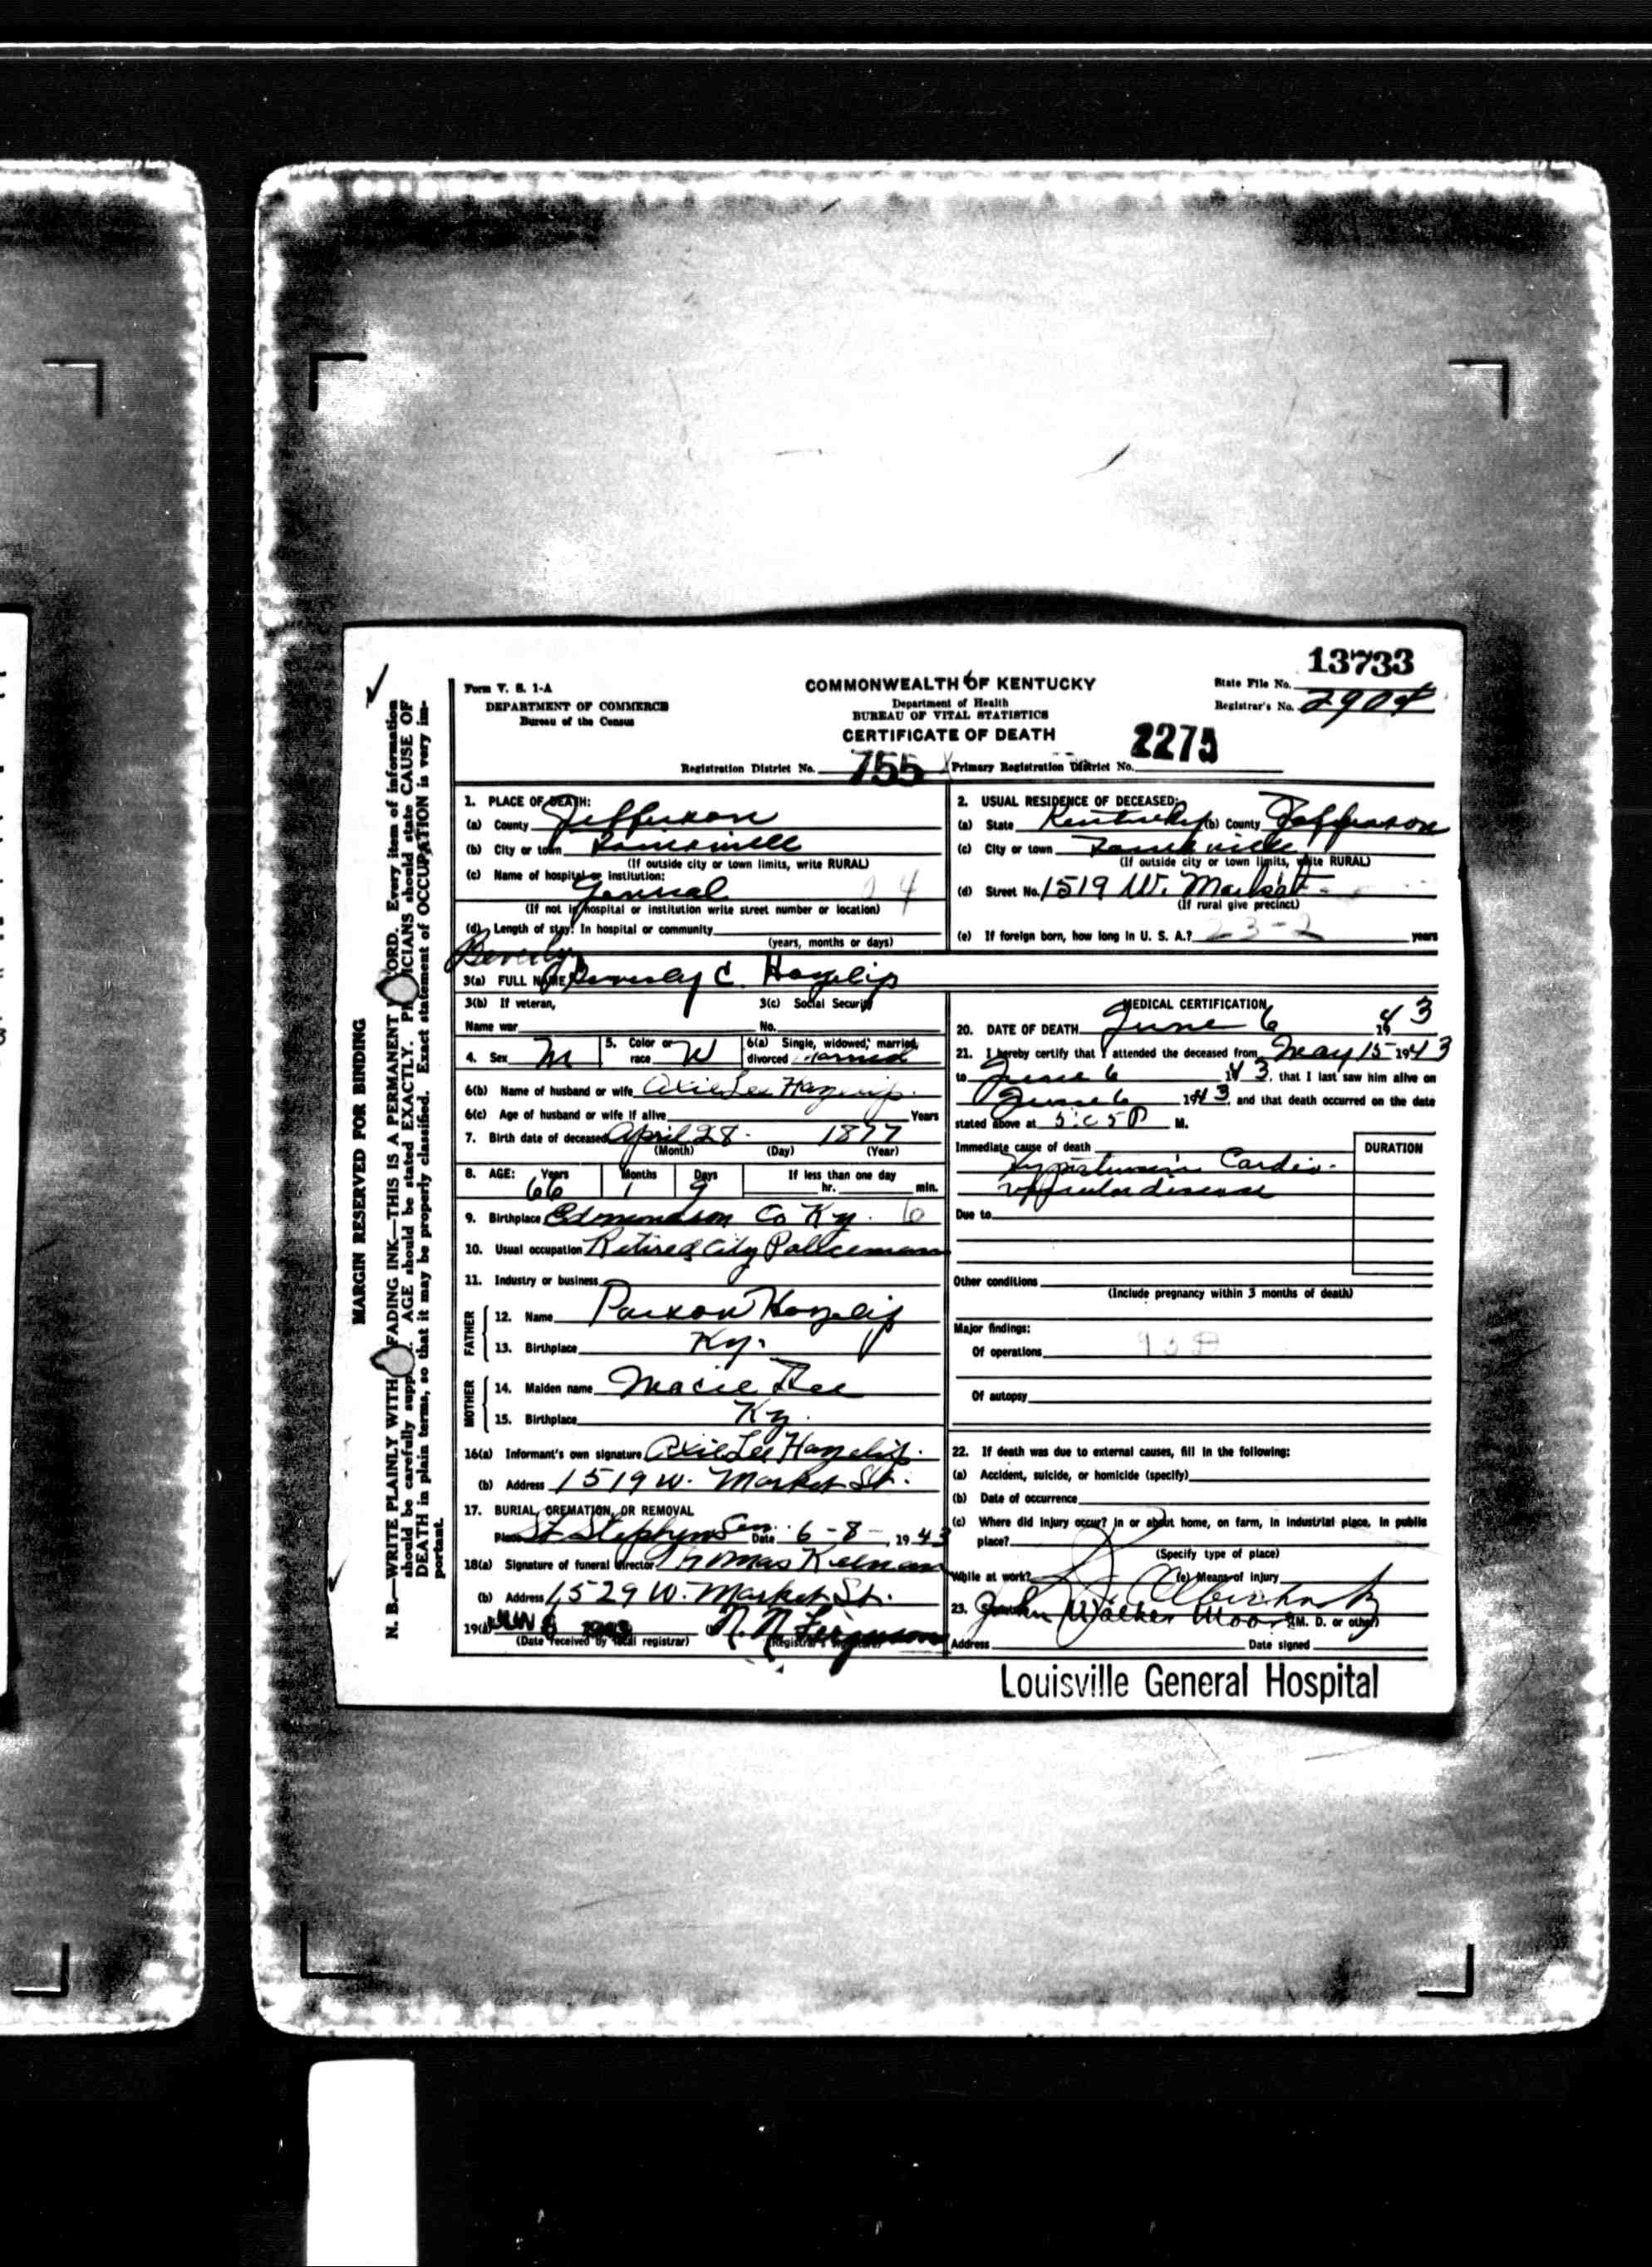 13733
Form V. S. 1-A
DEPARTMENT OF COMMERCE
Bureau of the Census
COMMONWEALTH OF KENTUCKY
Department of Health
BUREAU OF VITAL STATISTICS
CERTIFICATE OF DEATH
State File No.
Registrar's No. 2904
2275
Registration District No. 755 Primary Registration District No.
MARGIN RESERVED FOR BINDING
N. B.—WRITE PLAINLY WITH FADING INK—THIS IS A PERMANENT ORD. Every item of information
should be carefully supp. AGE should be stated EXACTLY. P ICIANS should state CAUSE OF
DEATH in plain terms, so that it may be properly classified. Exact statement of OCCUPATION is very im-
portant.
1. PLACE OF DEATH:
(a) County Jefferson
(b) City or town Louisville
(If outside city or town limits, write RURAL)
(c) Name of hospital or institution:
General
(If not in hospital or institution write street number or location)
(d) Length of stay: In hospital or community
(years, months or days)
2. USUAL RESIDENCE OF DECEASED:
(a) State Kentucky (b) County Jefferson
(c) City or town Louisville
(If outside city or town limits, write RURAL)
(d) Street No. 1519 W. Market
(If rural give precinct)
(e) If foreign born, how long in U. S. A.? 23-2 years
Beverly
3(a) FULL NAME Beverly C. Hazelip
3(b) If veteran,
Name war
3(c) Social Security
No.
4. Sex M 5. Color or race W 6(a) Single, widowed, married, divorced Married
6(b) Name of husband or wife Axie Lee Hazelip.
6(c) Age of husband or wife if alive Years
7. Birth date of deceased April 28. 1877
(Month) (Day) (Year)
8. AGE: Years Months Days If less than one day
66 1 9 hr. min.
9. Birthplace Edmondson Co Ky. 6
10. Usual occupation Retired City Policeman
11. Industry or business
FATHER
12. Name Parson Hazelip
13. Birthplace Ky.
MOTHER
14. Maiden name Macie Lee
15. Birthplace Ky.
16(a) Informant's own signature Axie Lee Hazelip.
(b) Address 1519 W. Market St.
17. BURIAL, CREMATION, OR REMOVAL
Place St Stephens Cem. Date 6-8-, 1943
18(a) Signature of funeral director Thomas Keenan
(b) Address 1529 W. Market St.
19(a) JUN 1943 N. N. Ferguson
(Date received by local registrar) (Registrar's signature)
MEDICAL CERTIFICATION
20. DATE OF DEATH June 6 1943
21. I hereby certify that I attended the deceased from May 15 1943
to June 6 1943, that I last saw him alive on
June 6 1943, and that death occurred on the date
stated above at 5:05 P M.
Immediate cause of death DURATION
Hypertensive Cardio-
vascular disease
Due to
Other conditions
(Include pregnancy within 3 months of death)
Major findings:
Of operations
Of autopsy
22. If death was due to external causes, fill in the following:
(a) Accident, suicide, or homicide (specify)
(b) Date of occurrence
(c) Where did injury occur? In or about home, on farm, in industrial place, in public
place?
(Specify type of place)
While at work? (e) Means of injury
23. John Walker Moore (M. D. or other)
Address Date signed
Louisville General Hospital